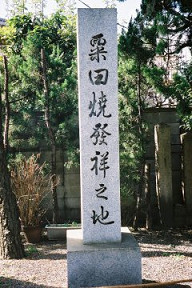 粟田燒發祥之地